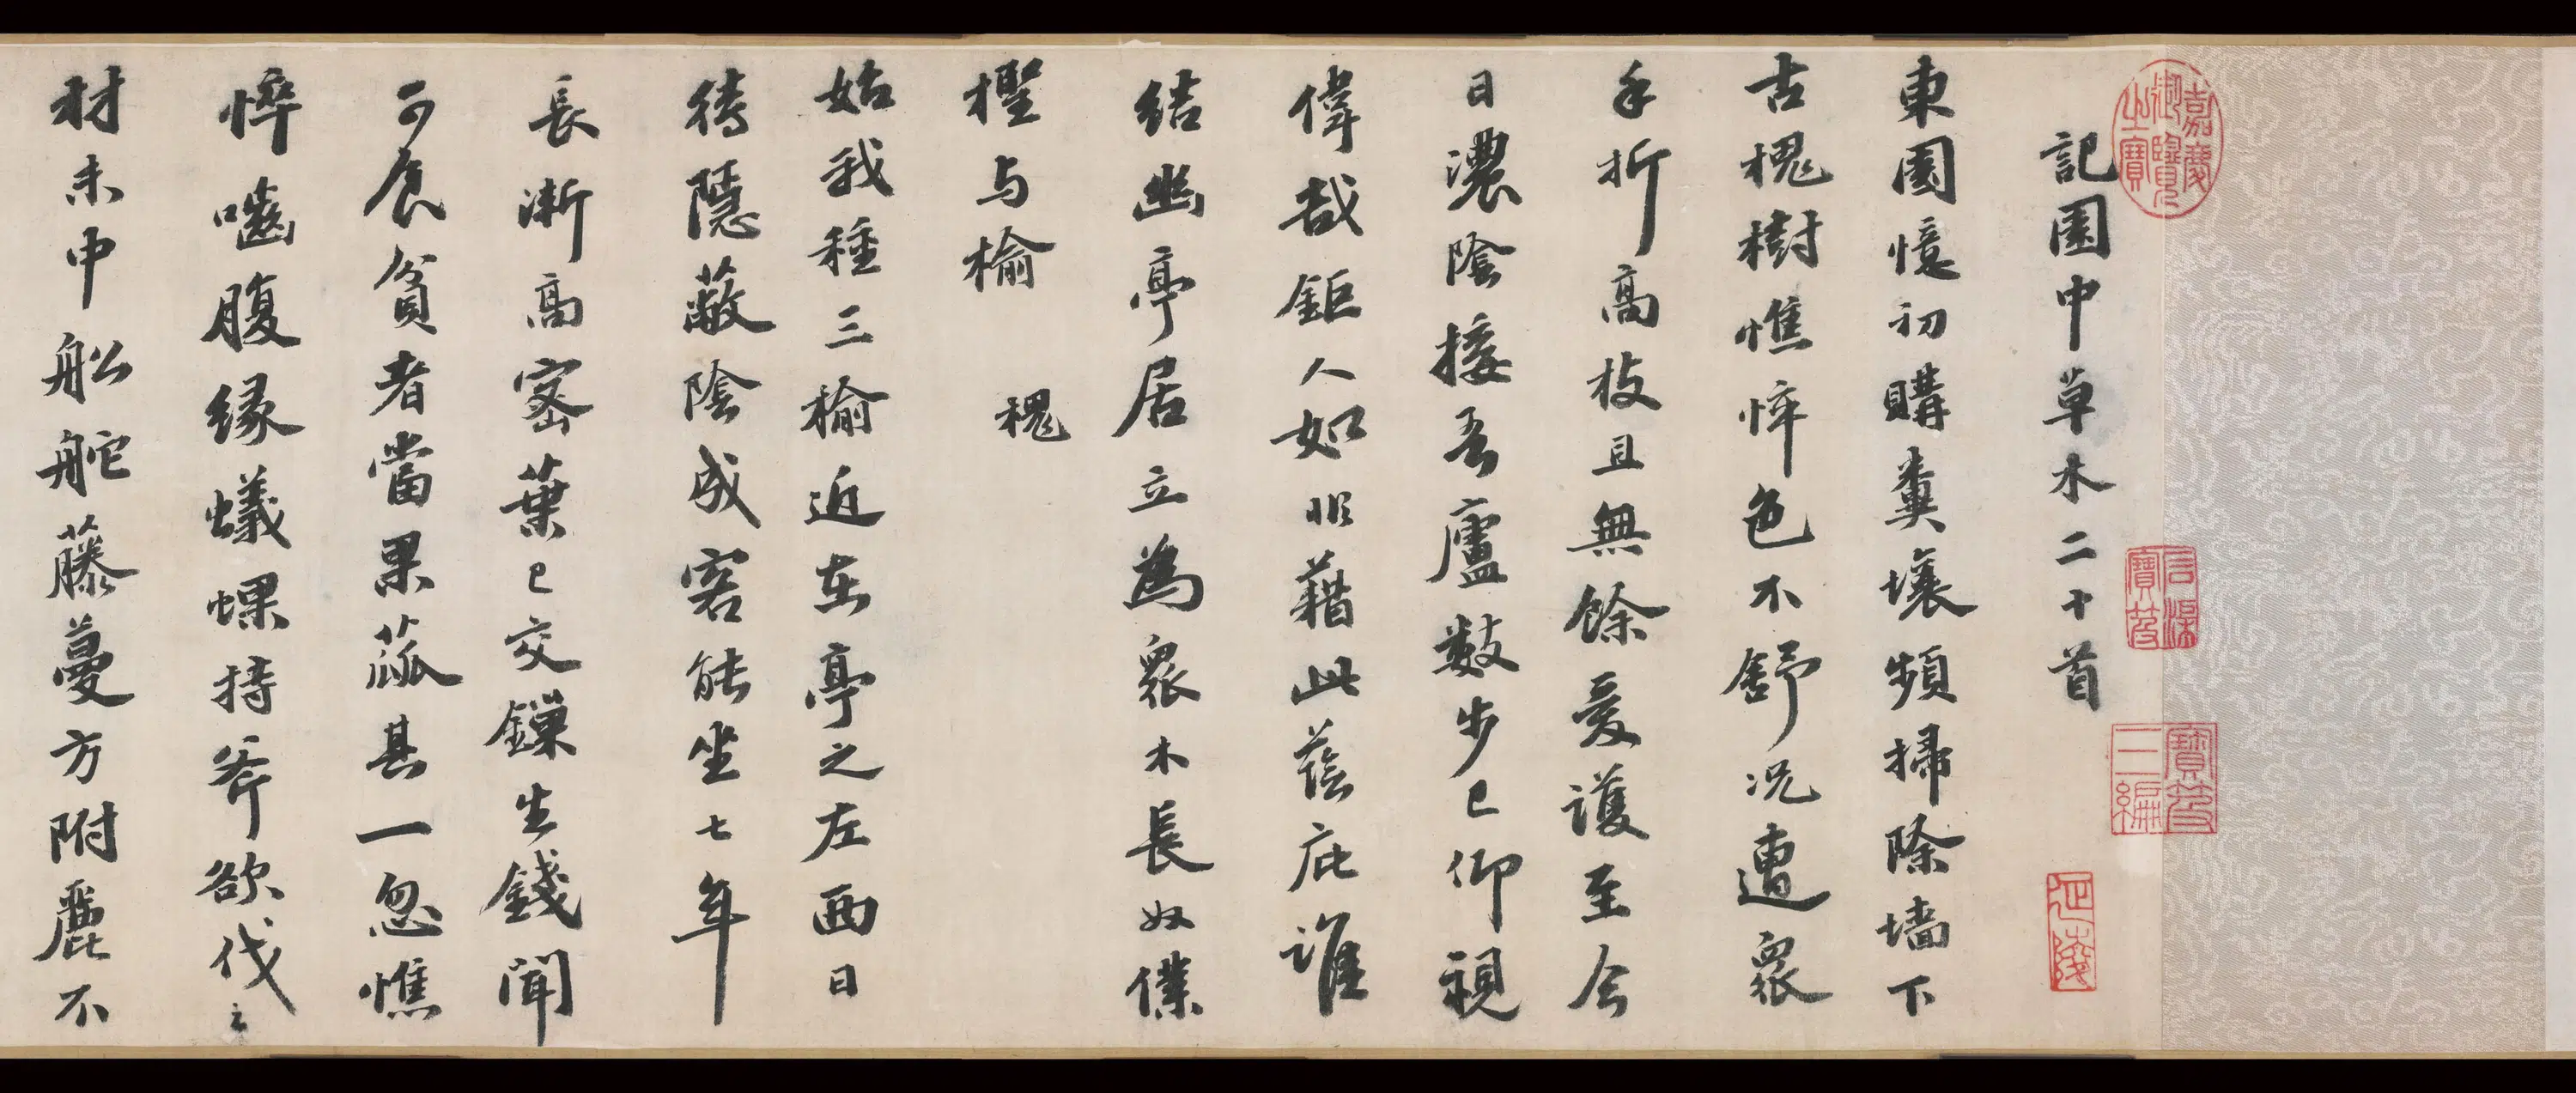 嘉慶御覽之寶
石渠寶笈
寶笈三編
延陵
記園中草木二十首
東園憶初購糞壤頻掃除墻下
古槐樹憔悴色不舒况遭衆
手折高枝且無餘愛護至今
日濃陰接吾廬數步已仰視
偉哉鉅人如非藉此蔭庇誰
結幽亭居立為衆木長奴僕
檉与榆 槐
始我種三榆近在亭之左西日
待隱蔽陰成客能坐七年
長漸高密葉已交鏁生錢聞
可食貧者當果蓏其一忽憔
悴嚙腹緣蟻蜾持斧欲伐之
材未中舩舵藤蔓方附麗不